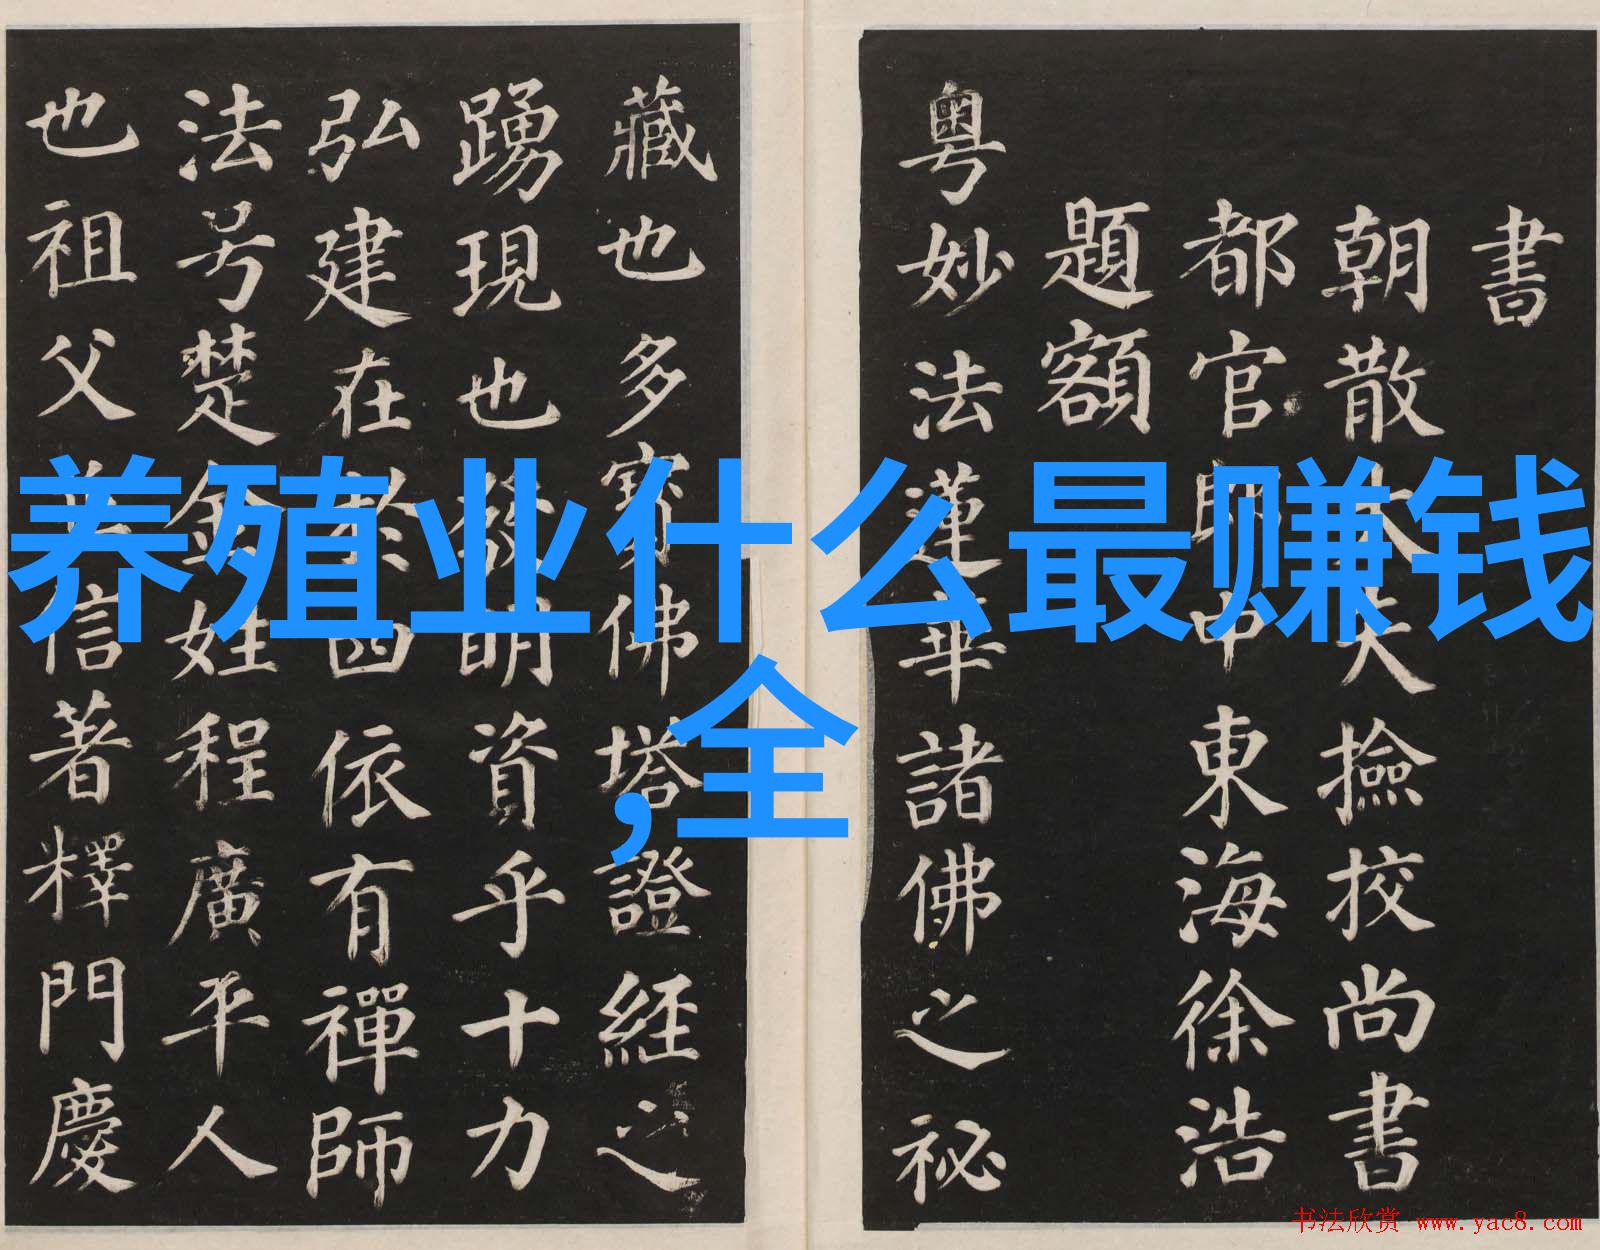 書
朝散大夫撿挍尚書
都官郎中東海徐浩
題額
粵妙法蓮華諸佛之祕
藏也多寶佛塔證經之
踴現也發明資乎十力
弘建在於四依有禪師
法号楚金姓程廣平人
也祖父信著釋門慶
养殖业什么最赚钱
,全
书法欣赏 www.yac8.com